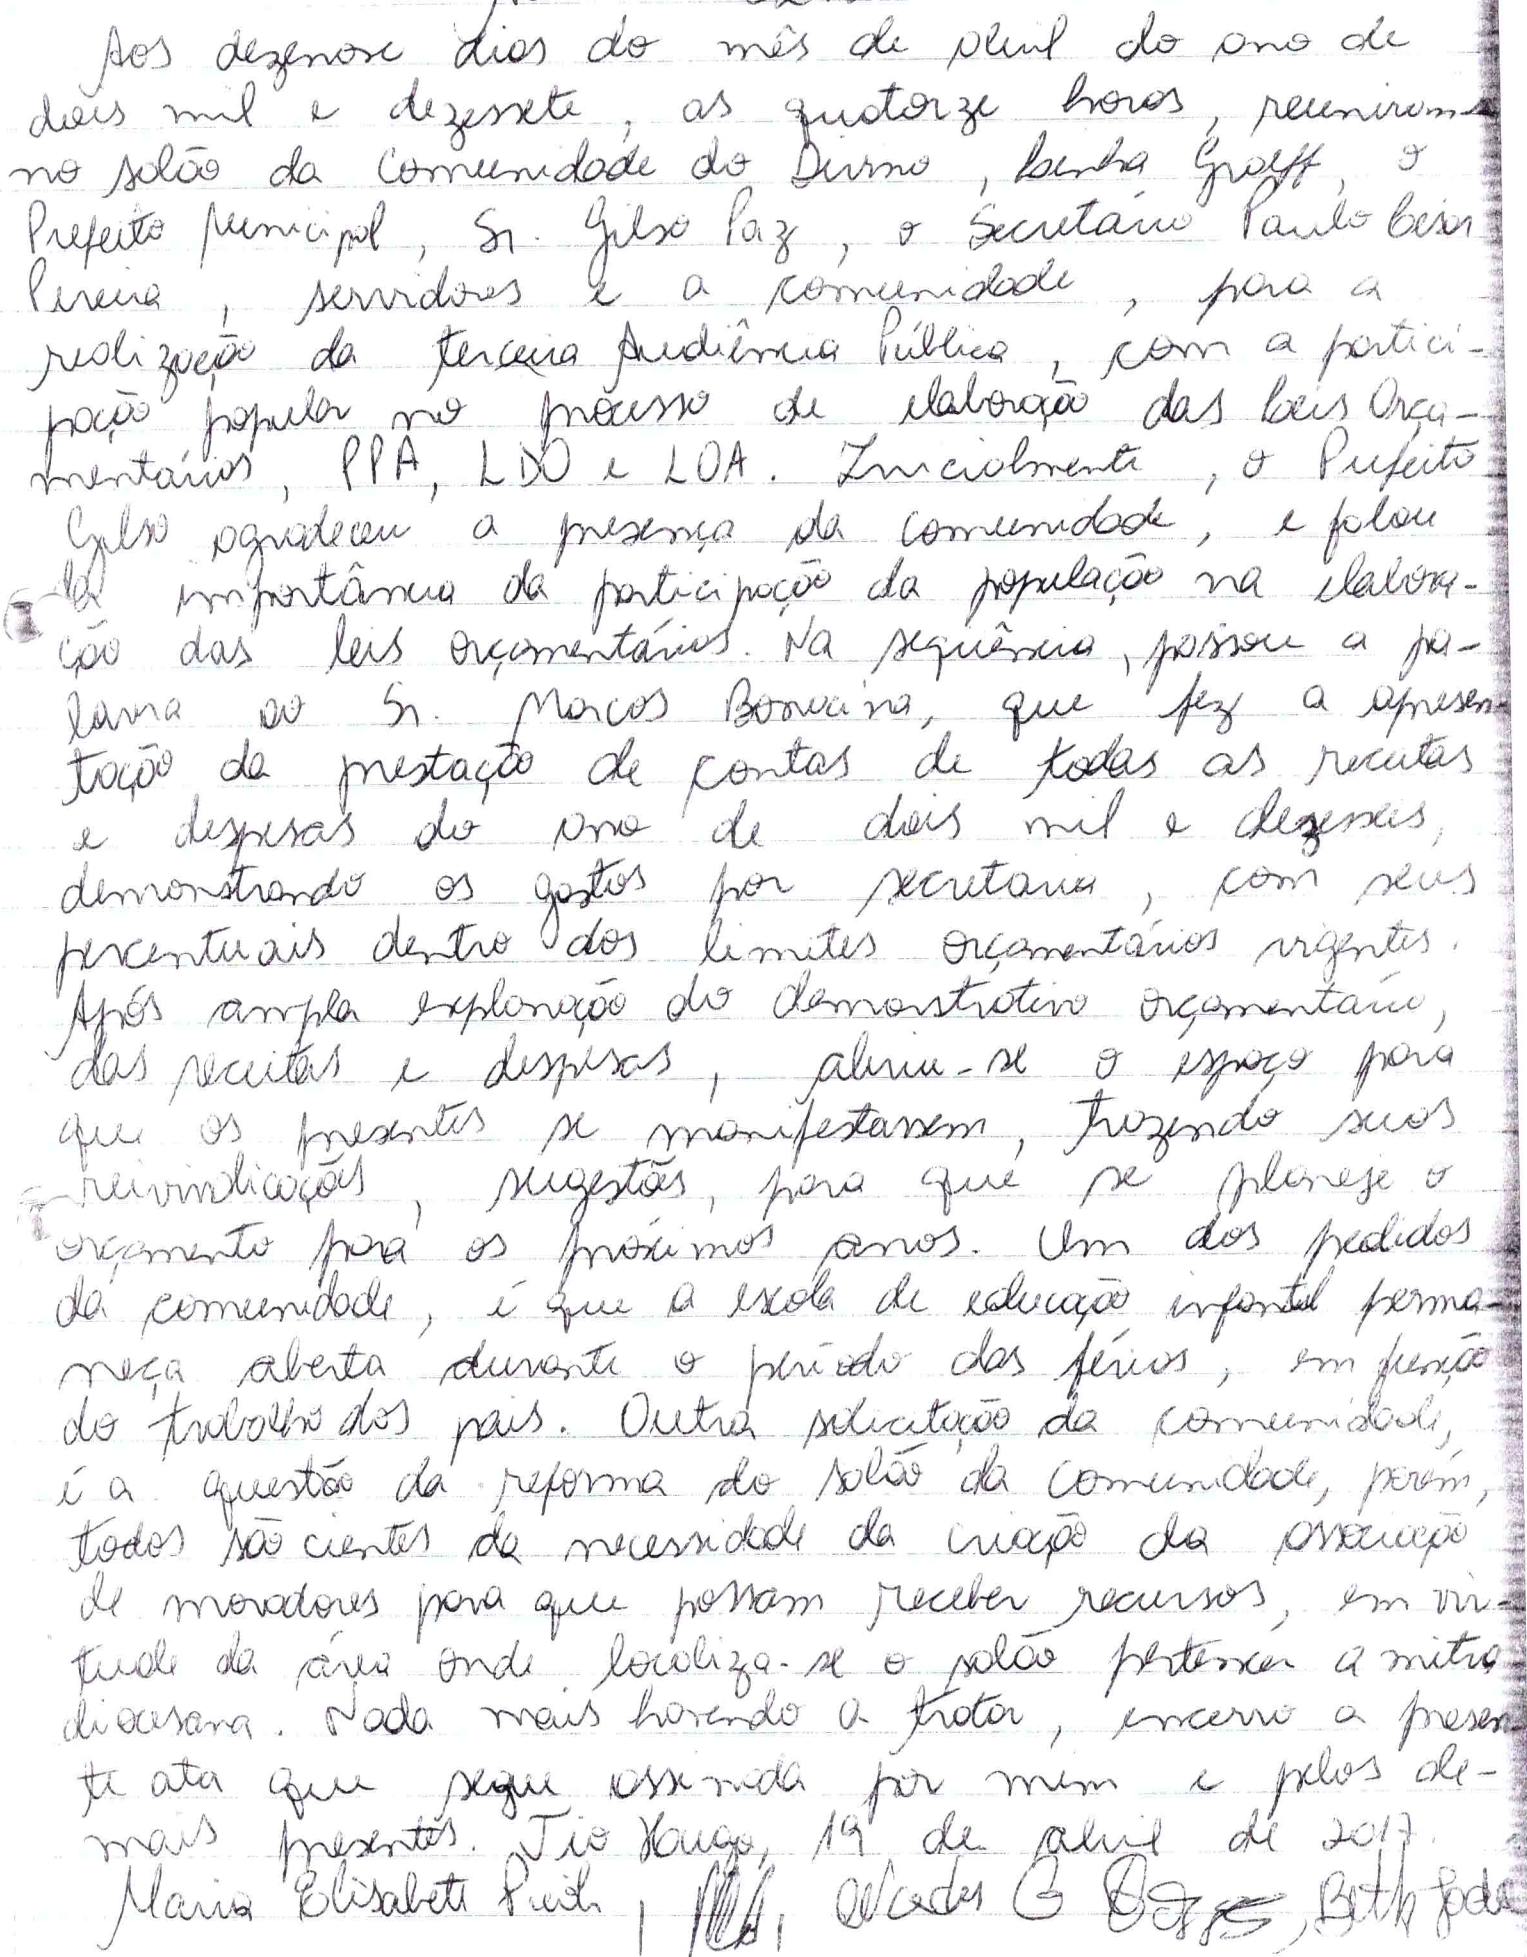 Aos dezenove dias do mês de abril do ano de
dois mil e dezessete, as quatorze horas, reuniram-se
no salão da Comunidade do Divino, Linha Graeff, o
Prefeito Municipal, Sr. Gilso Paz, o Secretário Paulo César
Pereira, servidores e a comunidade, para a
realização da terceira Audiência Pública, com a partici-
pação popular no processo de elaboração das Leis Orça-
mentárias, PPA, LDO e LOA. Inicialmente, o Prefeito
Gilso agradeceu a presença da comunidade, e falou
da importância da participação da população na elabora-
ção das leis orçamentárias. Na sequência, passou a pa-
lavra ao Sr. Marcos, que fez a apresen-
tação da prestação de contas de todas as receitas
e despesas do ano de dois mil e dezesseis,
demonstrando os gastos por secretaria, com seus
percentuais dentro dos limites orçamentários vigentes.
Após ampla explanação do demonstrativo orçamentário,
das receitas e despesas, abriu-se o espaço para
que os presentes se manifestassem, trazendo suas
reivindicações, sugestões, para que se planeje o
orçamento para os próximos anos. Um dos pedidos
da comunidade, é que a escola de educação infantil perma-
neça aberta durante o período das férias, em função
do trabalho dos pais. Outra solicitação da comunidade,
é a questão da reforma do salão da Comunidade, porém,
todos são cientes da necessidade da criação da associação
de moradores para que possam receber recursos, em vir-
tude da área onde localiza-se o salão pertencer a mitra
diocesana. Nada mais havendo a tratar, encerro a presen-
te ata que segue assinada por mim e pelos de-
mais presentes. Tio Hugo, 19 de abril de 2017.
Maria Elisabete